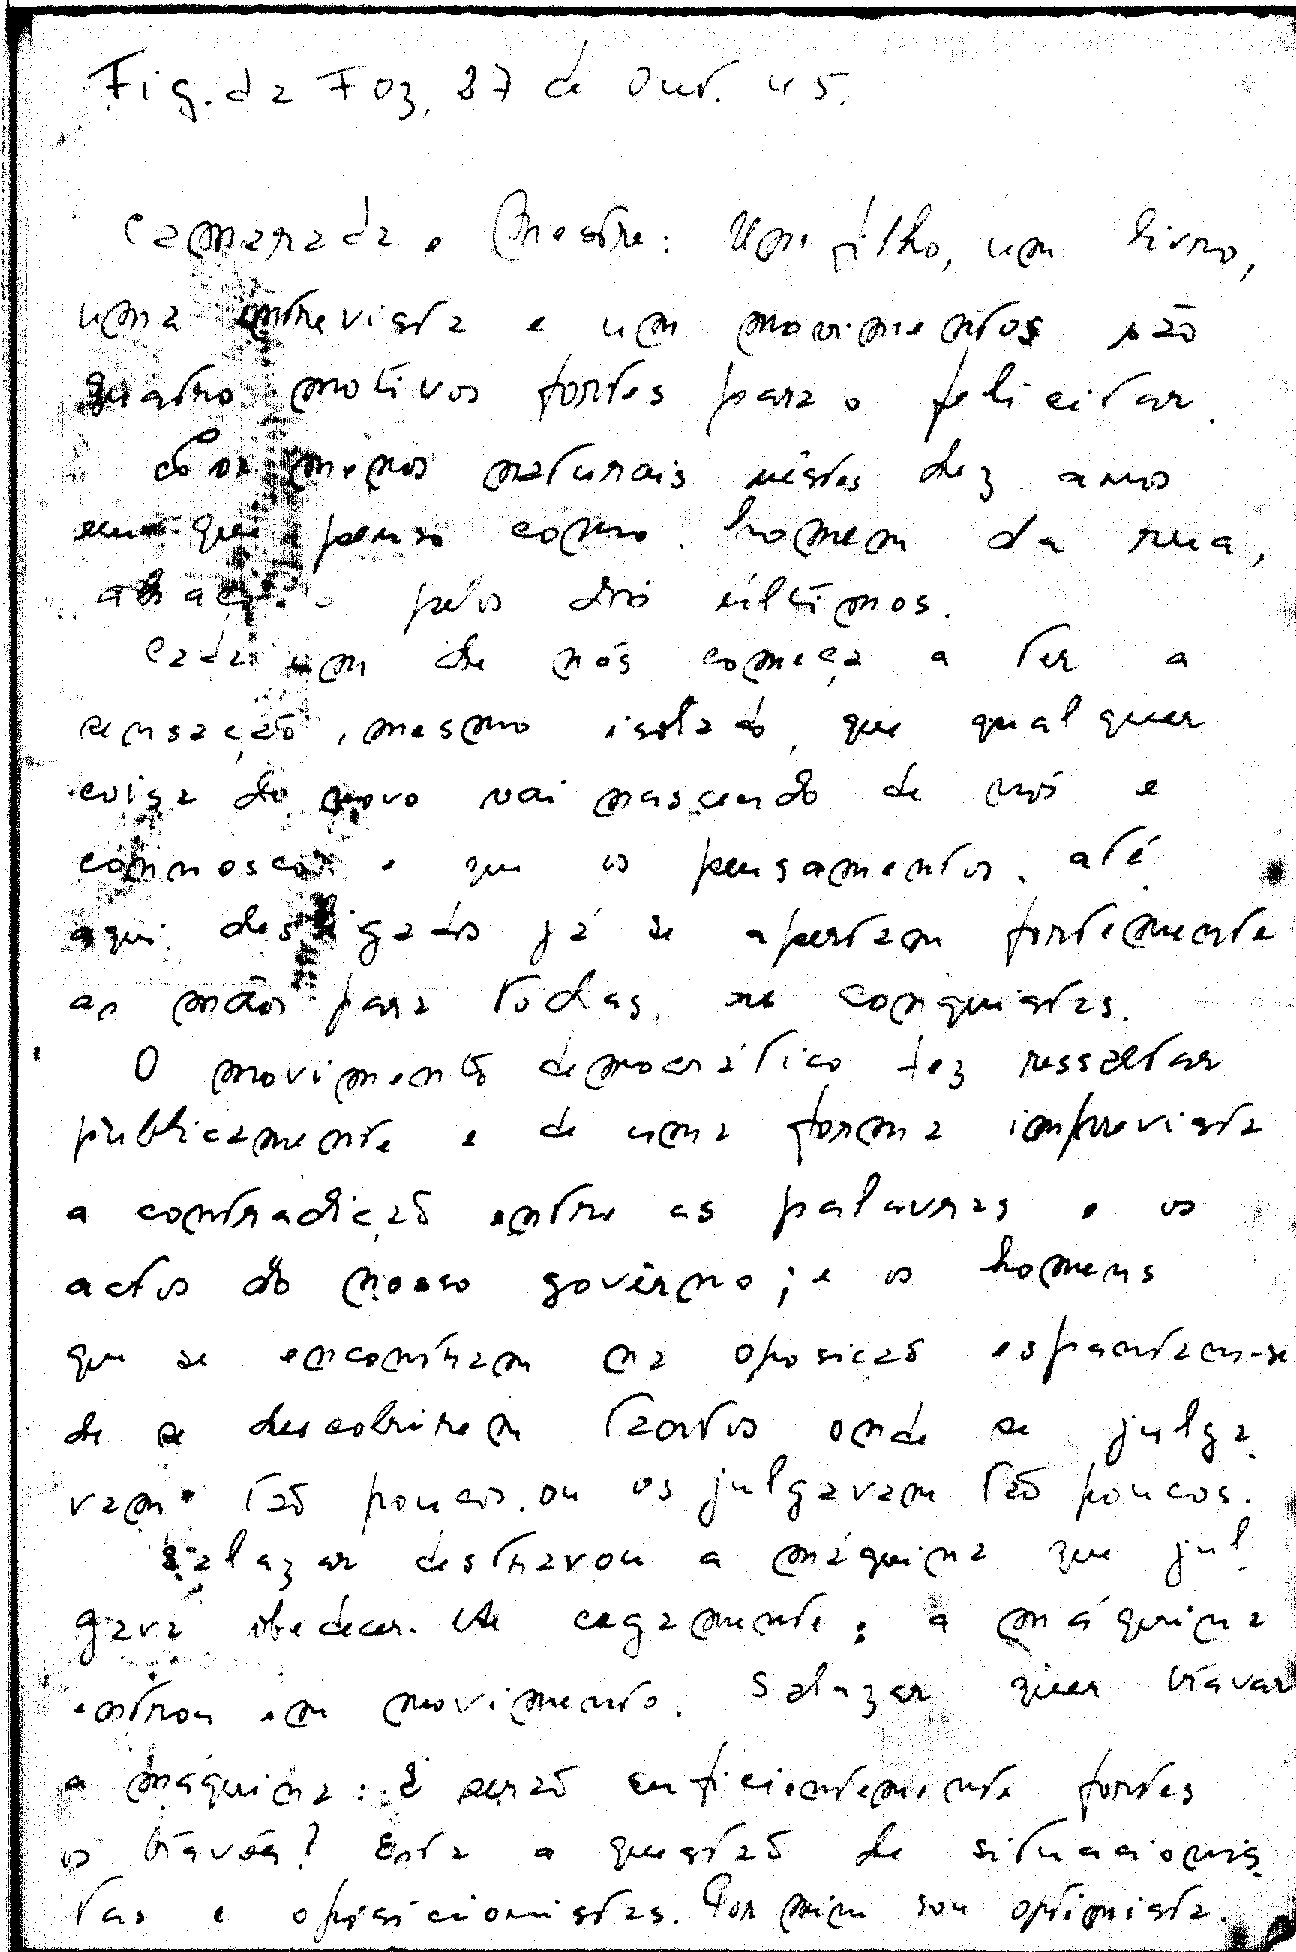 Fig. da Foz, 27 de Out. 45.
Camarada e Mestre: Um filho, um livro,
uma entrevista e um movimentos são
quatro motivos fortes para o felicitar.
menos naturais nêstes dez anos
em que penso como homem da rua,
abraço-o pelos dois últimos.
Cada um de nós começa a ter a
sensação, mesmo isolado, que qualquer
coisa de novo vai nascendo de nós e
connosco e que os pensamentos até
aqui desligados já se apertam fortemente
as mãos para todas as conquistas.
O movimento democrático fez ressaltar
publicamente e de uma forma imprevista
a contradição entre as palavras e os
actos do nosso govêrno; e os homens
que se encontram na oposição espantam-se
de se descobrirem tantos onde se julga
vam tão poucos ou os julgavam tão poucos.
Salazar destravou a máquina que jul
gava obedecer-lhe cegamente; a máquina
entrou em movimento. Salazar quer travar
a máquina: E serão suficientemente fortes
os travões? Esta a questão de situacionis
tas e oposicionistas. Por mim sou optimista.